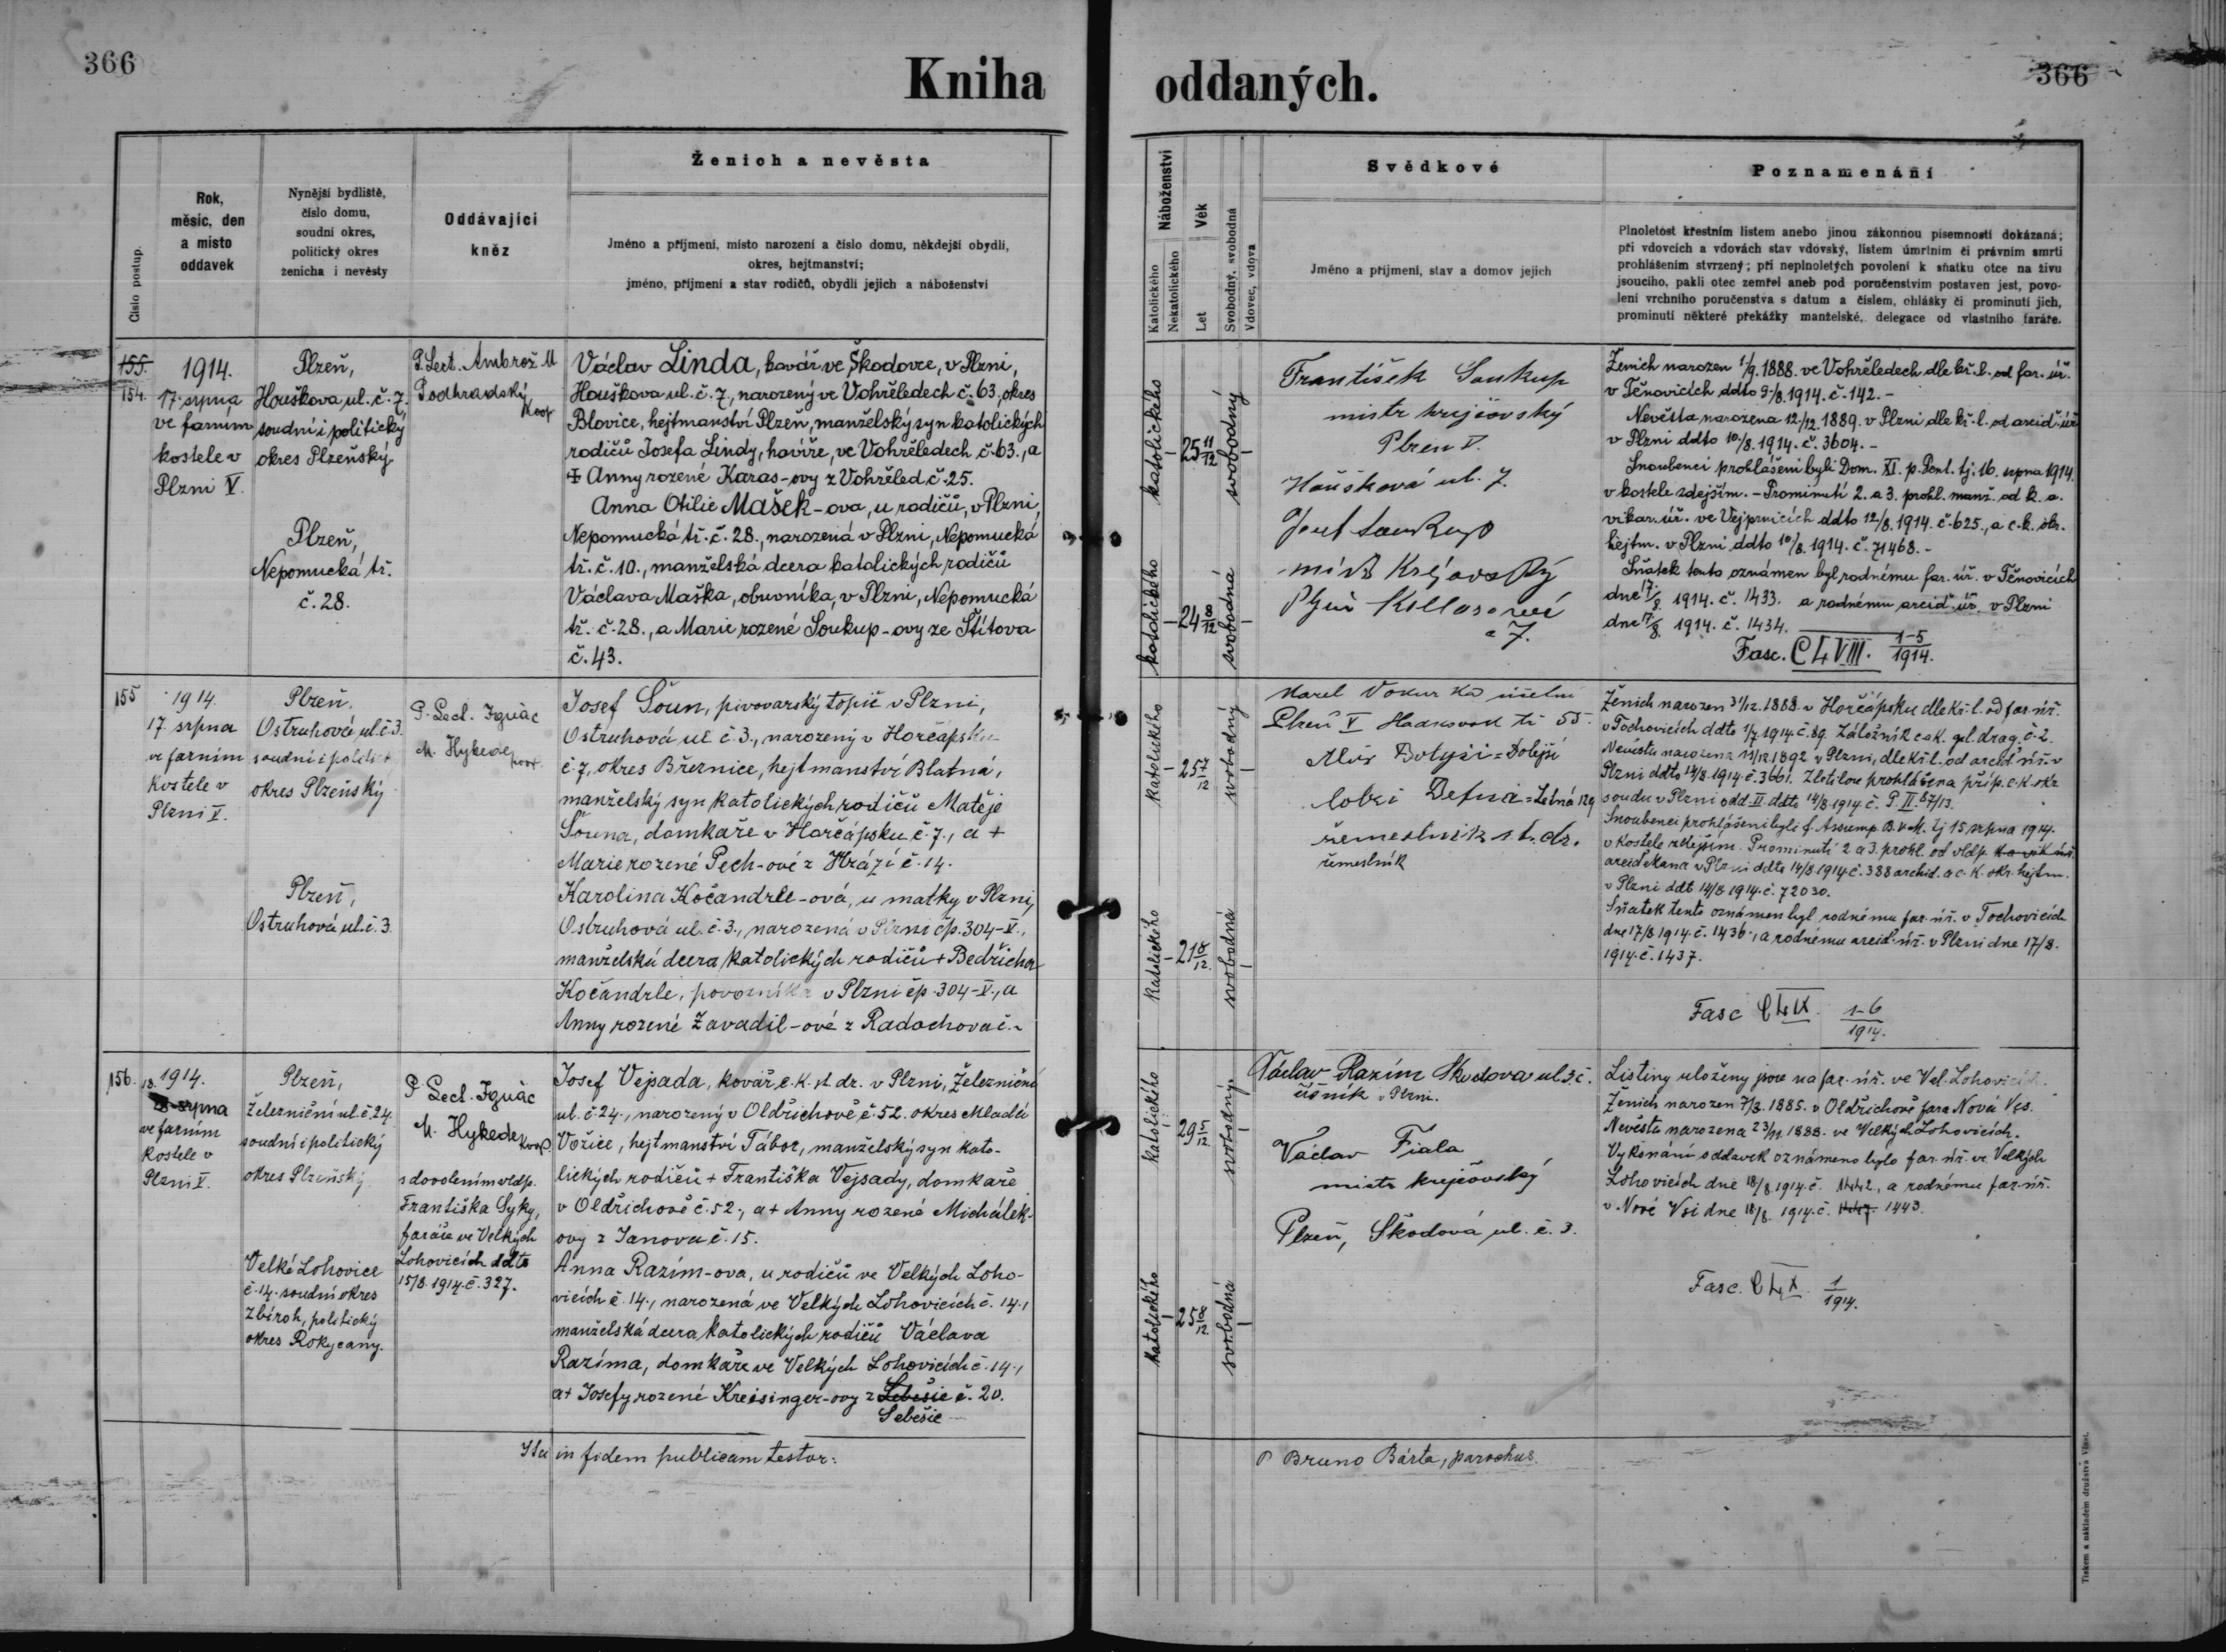 366
Kniha oddaných.
366
Číslo postup.
Rok,
měsíc, den
a místo
oddavek
Nynější bydliště,
číslo domu,
soudní okres,
politický okres
ženicha i nevěsty
Oddávající
kněz
Ženich a nevěsta
Jméno a příjmení, místo narození a číslo domu, někdejší obydlí,
okres, hejtmanství;
jméno, příjmení a stav rodičů, obydlí jejich a náboženství
Náboženství
Katolického
Nekatolického
Věk
Let
Svobodný, svobodná
Vdovec, vdova
Svědkové
Jméno a příjmení, stav a domov jejich
Poznamenání
Plnoletost křestním listem anebo jinou zákonnou písemností dokázaná;
při vdovcích a vdovách stav vdovský, listem úmrtním či právním smrti
prohlášením stvrzený; při neplnoletých povolení k sňatku otce na živu
jsoucího, pakli otec zemřel aneb pod poručenstvím postaven jest, povo-
lení vrchního poručenstva s datum a číslem, ohlášky či prominutí jich,
prominutí některé překážky manželské, delegace od vlastního faráře.
155.
154.
1914.
17. srpna
ve farním
kostele v
Plzni V.
Plzeň,
Houškova ul. č. 7,
soudní i politický
okres Plzeňský.
Plzeň,
Nepomucká tř.
č. 28.
P. Lect. Ambrož M
Podhradský
koop
Václav Linda, kovář ve Škodovce, v Plzni,
Houškova ul. č. 7, narozený ve Vohřeledech č. 63, okres
Blovice, hejtmanství Plzeň, manželský syn katolických
rodičů Josefa Lindy, havíře, ve Vohřeledech č. 63., a
+ Anny rozené Karas-ovy z Vohřeled č. 25.
Anna Otilie Mašek-ova, u rodičů, v Plzni,
Nepomucká tř. č. 28., narozená v Plzni, Nepomucká
tř. č. 10., manželská dcera katolických rodičů
Václava Maška, obuvníka, v Plzni, Nepomucká
tř. č. 28., a Marie rozené Soukup-ovy ze Štítova
č. 43.
katolického
25 11/12
svobodný
katolického
24 8/12
svobodná
František Soukup
mistr krejčovský
Plzen V.
Houšková ul. 7.
Josef Soukup
mistr Krejčovský
Plzeň Kollarova
č 7.
Ženich narozen 1/9. 1888. ve Vohřeledech dle kř. l. od far. úř.
v Těnovicích ddto 9./8. 1914. č. 142. -
Nevěsta narozena 12/12. 1889. v Plzni dle kř. l. od arcid. úř
v Plzni ddto 10./8. 1914. č. 3604. -
Snoubenci prohlášeni byli Dom. XI. p. Pent. tj. 16. srpna 1914.
v kostele zdejším. - Prominutí 2. a 3. prohl. manž. od k. a.
vikar. úř. ve Vejprnicích ddto 12/8. 1914. č. 625., a c. k. okr.
hejtm. v Plzni ddto 10/8. 1914. č. 71468. -
Sňatek tento oznámen byl rodnému far. úř. v Těnovicích
dne 17/8. 1914. č. 1433. a rodnému arcid. úř. v Plzni
dne 17/8. 1914. č. 1434.
Fasc. CLVIII. 1-5/1914.
155
1914.
17 srpna
ve farním
kostele v
Plzni V.
Plzeň.
Ostruhová ul. č. 3.
soudní i politick
okres Plzeňský
Plzeň,
Ostruhová ul. č. 3.
P. Lect. Ignác
M. Hykede
Josef Šoun, pivovarský topič v Plzni,
Ostruhová ul. č. 3., narozený v Horčápsku
č. 7, okres Březnice, hejtmanství Blatná,
manželský syn katolických rodičů Matěje
Šouna, domkaře v Horčápsku č. 7., a +
Marie rozené Pech-ové z Hrází č. 14.
Karolina Kočandrle-ová, u matky v Plzni,
Ostruhová ul. č. 3., narozená v Plzni čp. 304-V.,
manželská dcera katolických rodičů + Bedřicha
Kočandrle, povozníka v Plzni čp. 304-V., a
Anny rozené Zavadil-ové z Radochova č. -
katolického
25 7/12
svobodný
katolického
21 8/12.
svobodná
Karel Vokurka účetní
Plzeň V
55.
řemeslník
Ženich narozen 31/12. 1888. v Horčápsku dle kř. l. od far. úř.
v Tochovicích ddto 1/7. 1914. č. 89. Záložník c. a k. pl. drag. č. 2.
Nevěsta narozena 11/12 1892 v Plzni, dle kř. l. od arcid. úř. v
Plzni ddto 14/8. 1914. č. 3661. Zletilou prohlášena příp. c. k. okr
soudu v Plzni odd. II. ddto 14/8. 1914. č. P. II. 87/13.
Snoubenci prohlášeni byli f. Assump. B. V. M. tj 15 srpna 1914.
v kostele zdejším. Prominutí 2 a 3. prohl. od vldp.
arciděkana v Plzni ddto 14/8. 1914. č. 388 archid. a c. k. okr. hejtm.
v Plzni ddt 14/8. 1914. č. 72030.
Sňatek tento oznámen byl rodnému far. úř. v Tochovicích
dne 17/8. 1914. č. 1436., a rodnému arcid. úř. v Plzni dne 17/8.
1914. č. 1437.
Fasc CLIX. 1-6/1914.
156.
1914.
18. srpna
ve farním
kostele v
Plzni V.
Plzeň,
Železniční ul. č. 24.
soudní i politický
okres Plzeňský.
Velké Lohovice
č. 14. soudní okres
Zbiroh, politický
okres Rokycany.
P Lect. Ignác
M. Hykede koop.
s dovolením vldp.
Františka Syky,
faráře ve Velkých
Lohovicích ddto
15/8. 1914. č. 327.
Josef Vejsada, kovář c. k. st. dr. v Plzni, Železniční
ul. č. 24., narozený v Oldřichově č. 52. okres Mladá
Vožice, hejtmanství Tábor, manželský syn kato-
lických rodičů + Františka Vejsady, domkaře
v Oldřichově č. 52., a + Anny rozené Michálek-
ovy z Janova č. 15.
Anna Razím-ova, u rodičů ve Velkých Loho-
vicích č. 14., narozená ve Velkých Lohovicích č. 14.,
manželská dcera katolických rodičů Václava
Razíma, domkáře ve Velkých Lohovicích č. 14.,
a + Josefy rozené Kreisinger-ovy z Lebešic č. 20.
Sebešic
katolického
29 5/12
svobodný.
katolického
25 8/12
svobodná
Václav Razím Škodova ul. 3. č.
číšník v Plzni.
Václav Fiala
mistr krejčovský
Plzeň, Škodová ul. č. 3.
Listiny uloženy jsou na far. úř. ve Vel. Lohovicích.
Ženich narozen 7/3. 1885. v Oldřichově fara Nová Ves.
Nevěsta narozena 23/11. 1888. ve Velkých Lohovicích.
Vykonání oddavek oznámeno bylo far. úř. ve Velkých
Lohovicích dne 18/8. 1914. č. 1442., a rodnému far. úř.
v Nové Vsi dne 18/8. 1914. č. 1443.
Fasc. CLX. 1/1914.
Ita in fidem publicam testor:
P Bruno Bárta, parochus.
Tiskem a nákladem družstva Vlast.